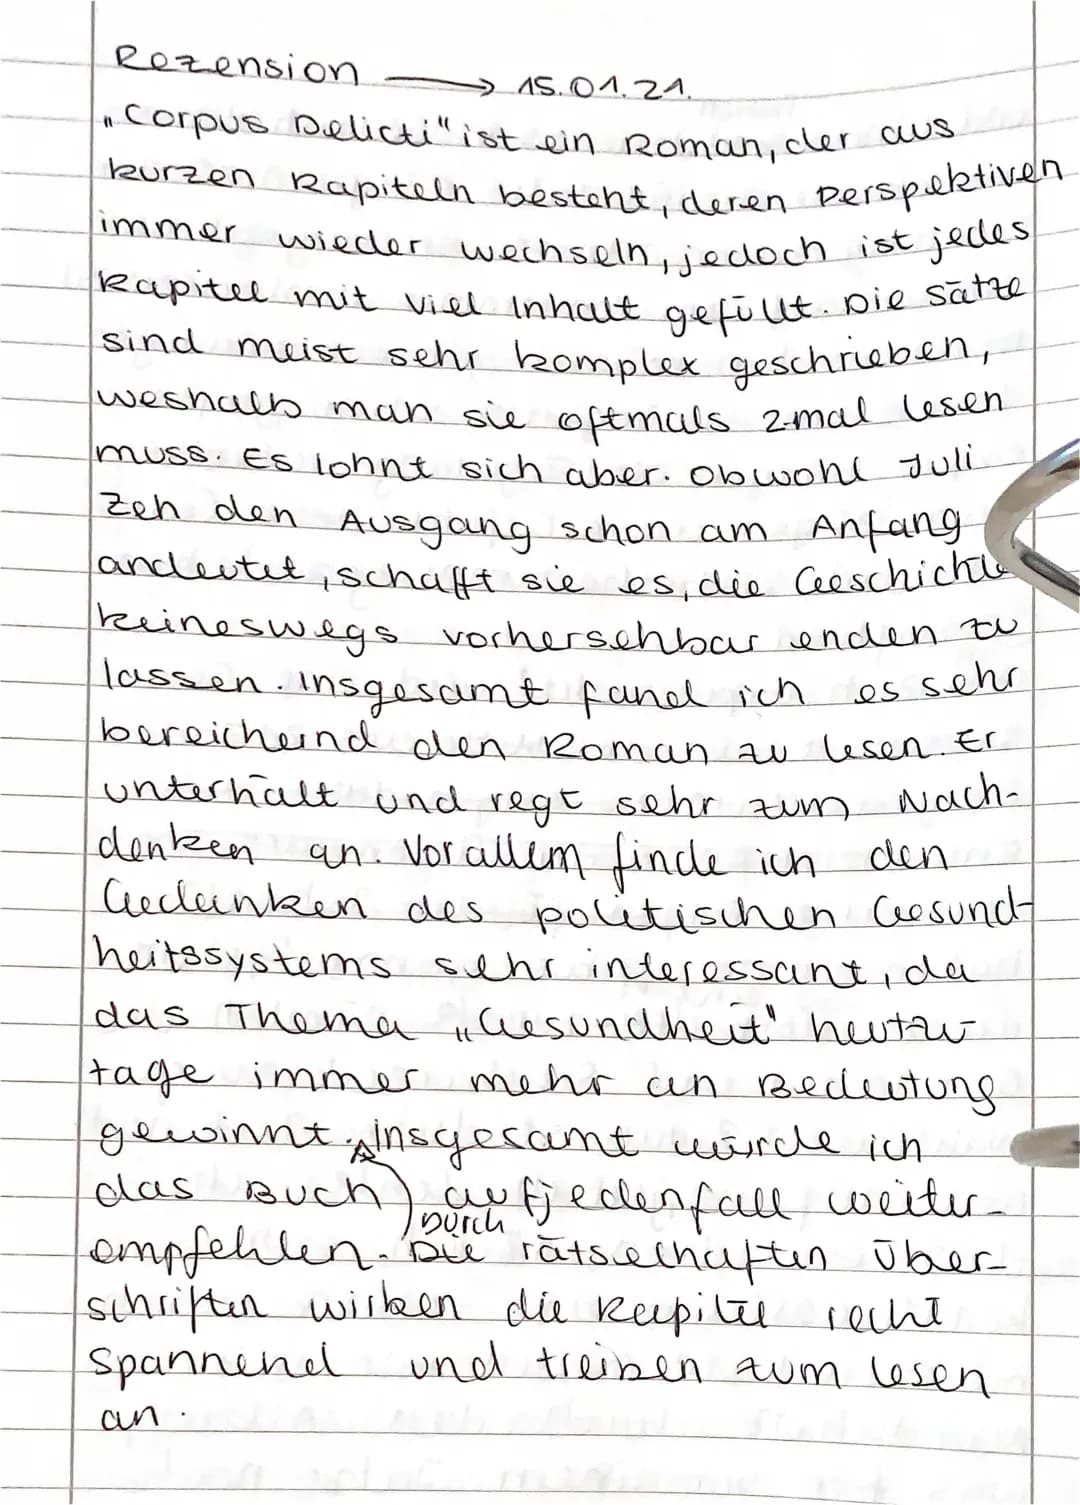 Rezension → 15.01.21.
„Corpus Delicti" ist ein Roman, der aus
kurzen Kapiteln besteht, deren Perspektiven
immer wieder wechseln, jedoch ist jedes
Kapitel mit viel Inhalt gefüllt. Die Sätze
sind meist sehr komplex geschrieben,
weshalb man sie oftmals 2-mal lesen
muss. Es lohnt sich aber. Obwohl Juli
Zeh den Ausgang schon am Anfang
andeutet, schafft sie es, die Geschichte
keineswegs vorhersehbar enden zu
lassen. Insgesamt fand ich es sehr
bereichernd den Roman zu lesen. Er
unterhält und regt sehr zum Nach-
denken an. Vorallem finde ich den
Gedanken des politischen Gesund-
heitssystems sehr interessant, da
das Thema „Gesundheit" heutzu-
tage immer mehr an Bedeutung
gewinnt. Insgesamt würde ich
das Buch aufjedenfall weiter-
Durch
empfehlen. Die rätselhaften Über-
schriften wirken die Kapitel recht
spannend und treiben zum lesen
an.